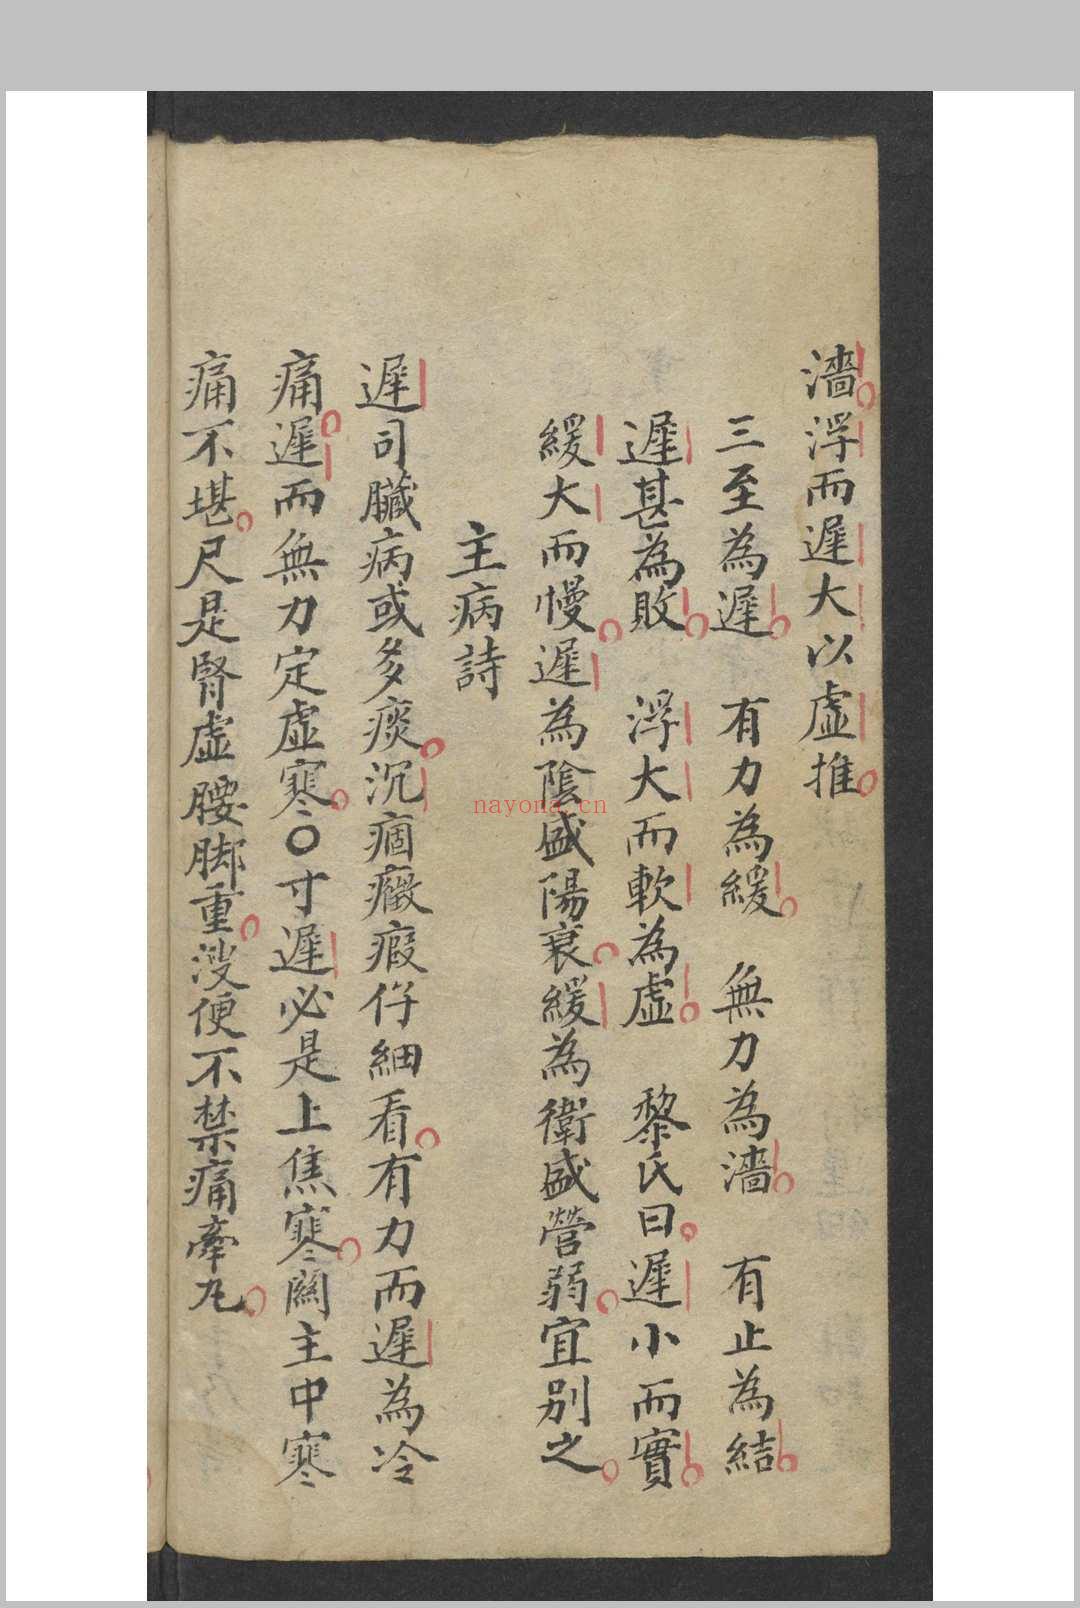 濇浮而遲大以虛推
三至為遲　有力為緩　無力為濇　有止為結
遲甚為敗　浮大而軟為虛　黎氏曰遲小而實
緩大而慢遲為陰盛陽衰緩為衛盛營弱宜別之
主病詩
遲司臟病或多痰沉痼癥瘕仔細看有力而遲為冷
痛遲而無力定虛寒〇寸遲必是上焦寒關主中寒
痛不堪尺是腎虛腰脚重溲便不禁痛牽丸
nayona.cn